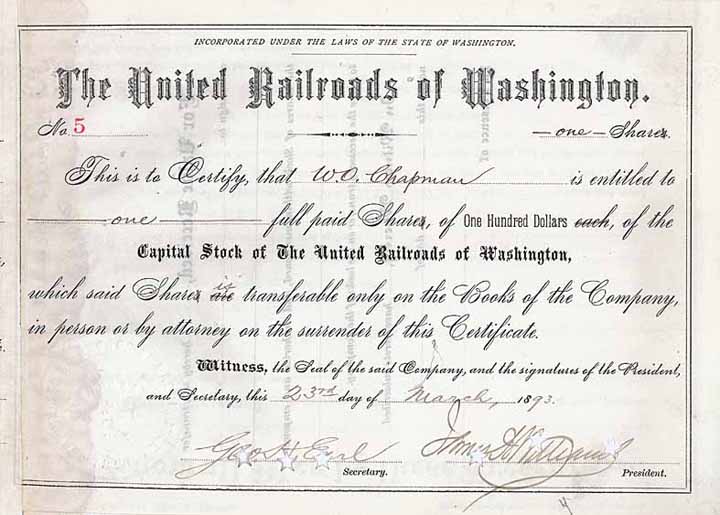 INCORPORATED UNDER THE LAWS OF THE STATE OF WASHINGTON.
The United Railroads of Washington.
No. 5 one Share
This is to Certify, that W.O. Chapman is entitled to
one full paid Share, of One Hundred Dollars each, of the
Capital Stock of The United Railroads of Washington,
which said Share is are transferable only on the Books of the Company,
in person or by attorney on the surrender of this Certificate.
Witness, the Seal of the said Company, and the signatures of the President,
and Secretary, this 23rd day of March, 1893.
Geo. H. Earl
Secretary. President.